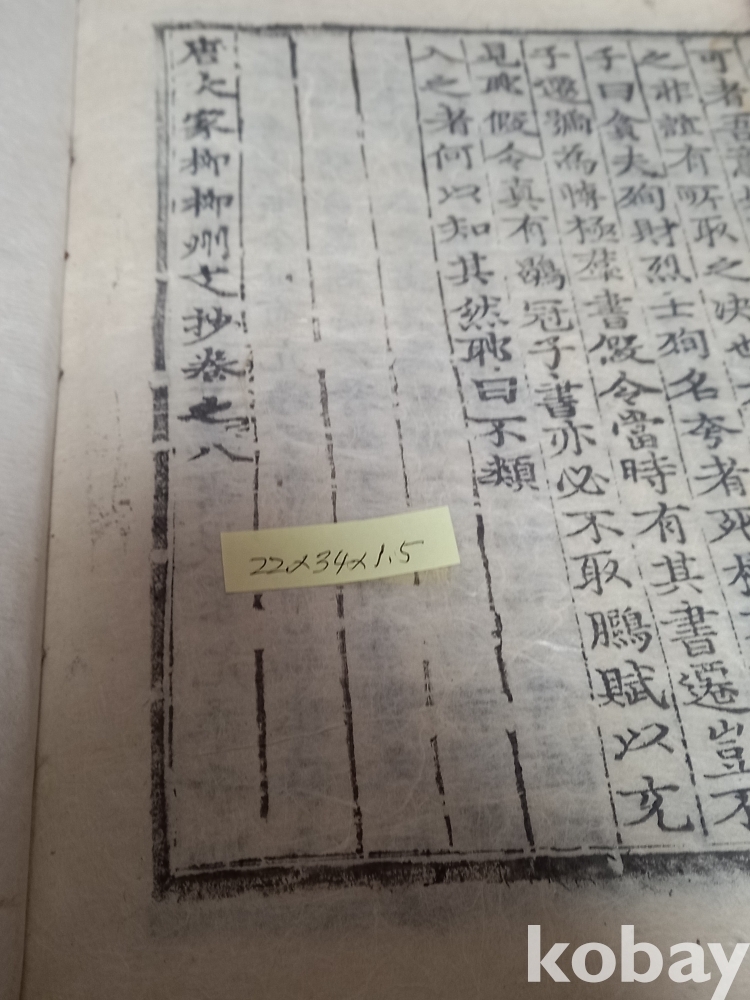 可者吾意
之非誼有所取之决也
子曰貪夫殉財烈士狥名夸者死
子遷號為博極羣書假令當時有其書遷豈不
見耶假令真有鶡冠子書亦必不取鵩賦以充
入之者何以知其然耶曰不類
唐大家柳柳州文抄卷之八
22x34x1.5
kobay